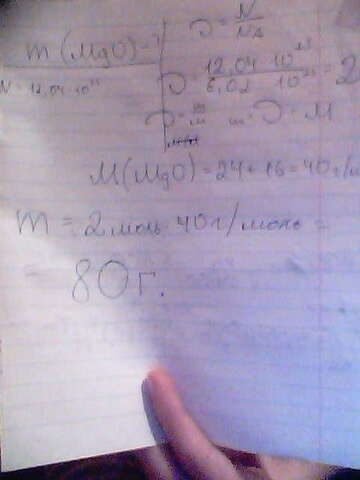 m (MgO) - ?
N = 12,04 · 10²³
υ = N / NA
υ = 12,04 · 10²³ / 6,02 · 10²³ = 2
υ = m / M m = υ · M
M(MgO) = 24 + 16 = 40 г/м
m = 2 моль · 40 г/моль =
= 80 г.